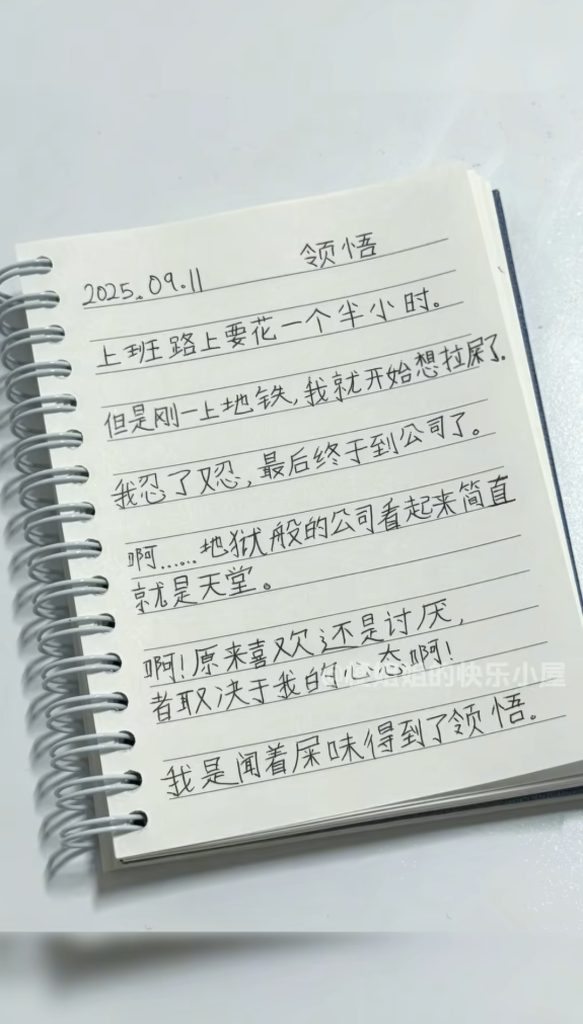 2025.09.11 领悟
上班路上要花一个半小时。
但是刚一上地铁,我就开始想拉屎了.
我忍了又忍,最后终于到公司了。
啊……地狱般的公司看起来简直
就是天堂。
啊!原来喜欢还是讨厌,
者取决于我的心态啊!
的快乐小屋
我是闻着屎味得到了领悟。